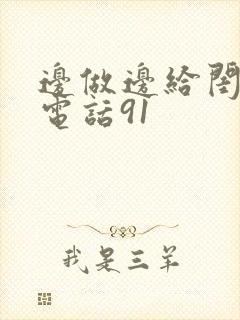 邊做邊給閨
電話91
我是三羊